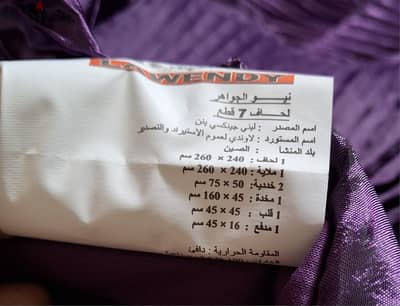 LAWENDY
نيو الجواهر
لحاف 7 قطع
اسم المصدر : ليني جينكسي يلن
اسم المستورد : لاوندي لعموم الاستيراد والتصدير
بلد المنشأ : الصين
1 لحاف : 240 × 260 سم
1 ملاية : 240 × 260 سم
2 خددية : 50 × 75 سم
1 مخدة : 45 × 160 سم
1 قلب : 45 × 45 سم
1 مدفع : 16 × 45 سم
المقاومة الحرارية : دافئ